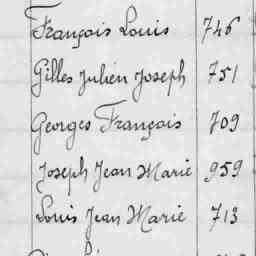 François Louis 746
Gilles Julien Joseph 751
Georges François 709
Joseph Jean Marie 959
Louis Jean Marie 713